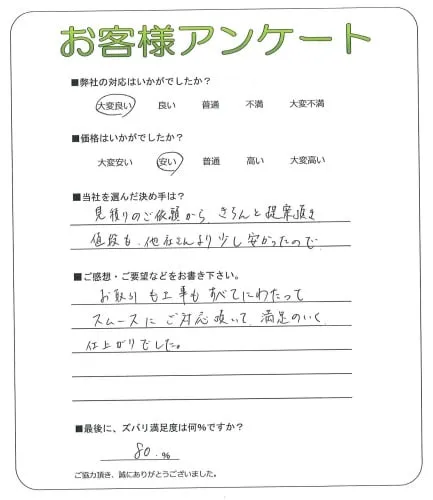 お客様アンケート
■弊社の対応はいかがでしたか？
大変良い 良い 普通 不満 大変不満
■価格はいかがでしたか？
大変安い 安い 普通 高い 大変高い
■当社を選んだ決め手は？
見積りのご依頼から、きちんと提案頂き
値段も、他社さんより少し安かったので
■ご感想・ご要望などをお書き下さい。
お取引も工事もすべてにわたって
スムースにご対応頂いて満足のいく
仕上がりでした。
■最後に、ズバリ満足度は何％ですか？
80.％
ご協力頂き、誠にありがとうございました。